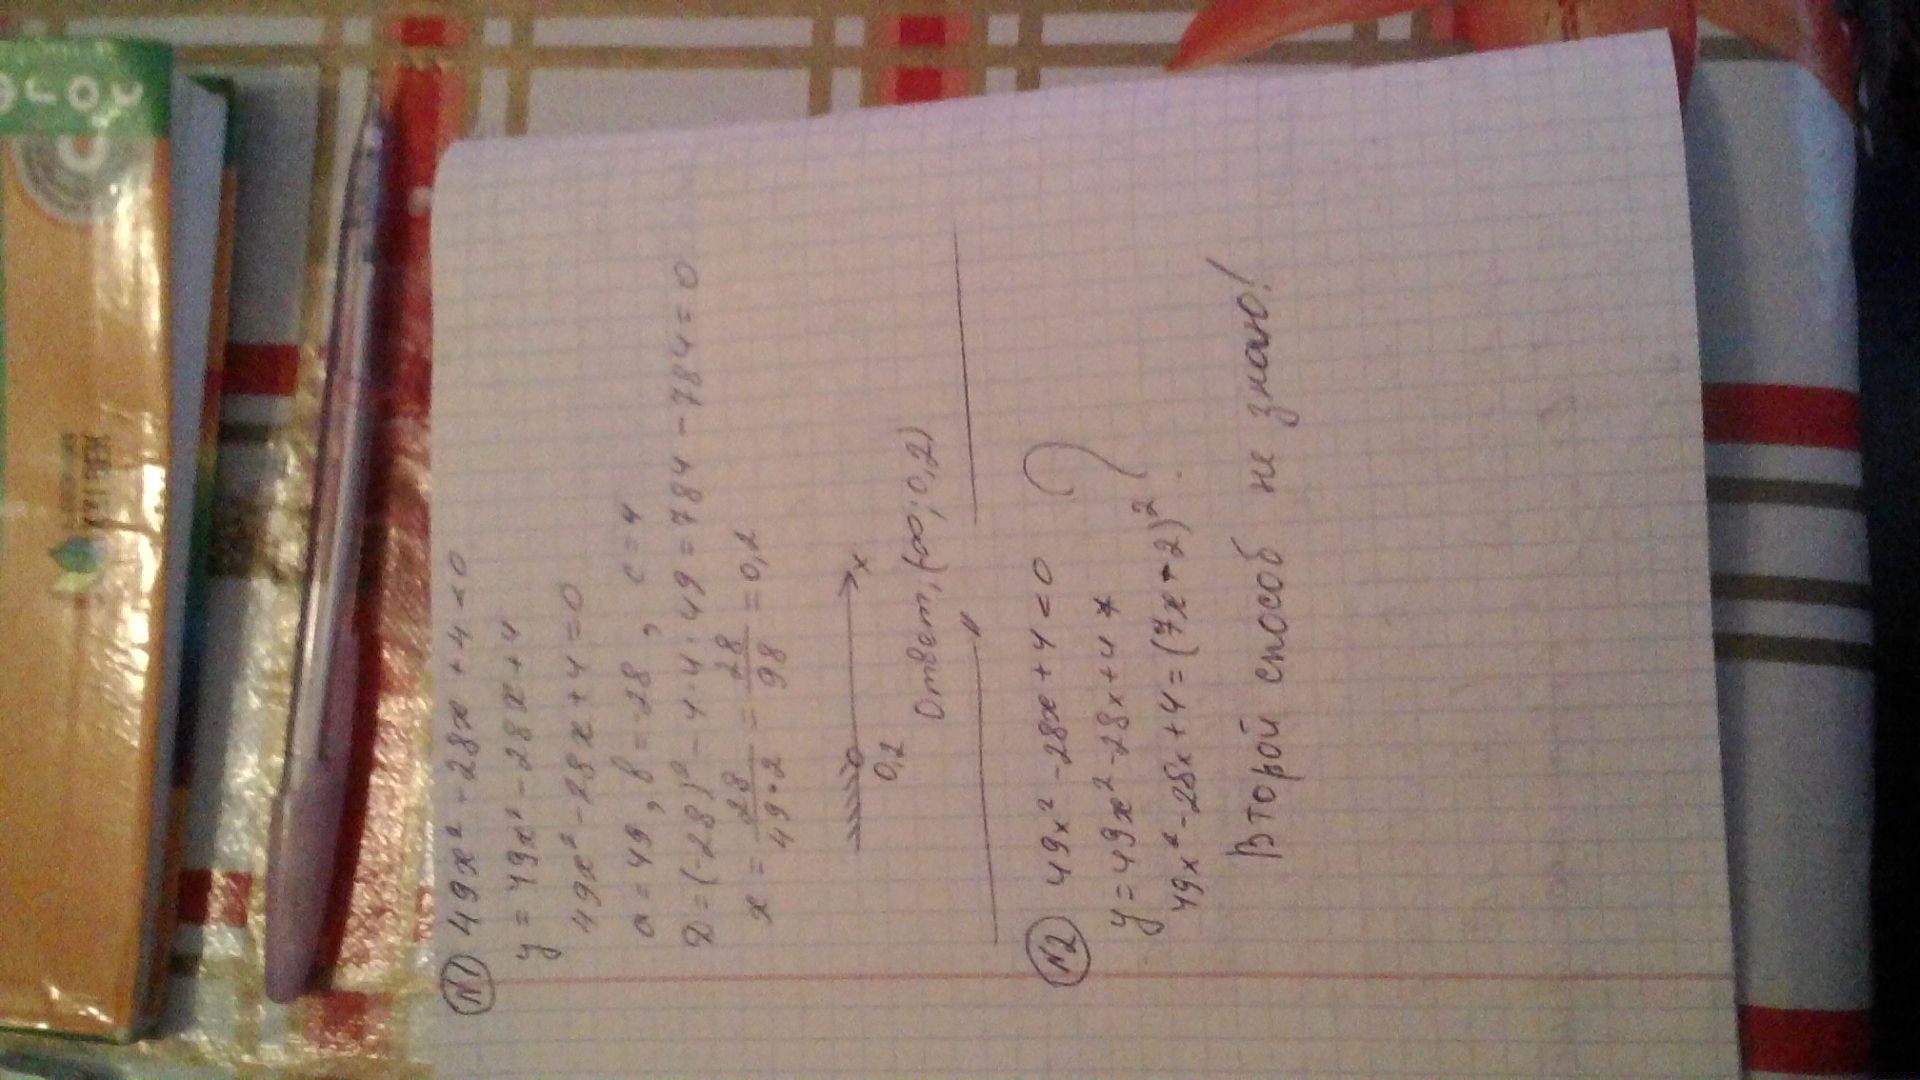 №1 49x² - 28x + 4 < 0
y = 49x² - 28x + 4
49x² - 28x + 4 = 0
a = 49, b = -28, c = 4
D = (-28)² - 4·4·49 = 784 - 784 = 0
x = 28/49·2 = 28/98 = 0,2
x
0,2
Ответ, (-∞; 0,2)
№2 49x² - 28x + 4 < 0
y = 49x² - 28x + 4
49x² - 28x + 4 = (7x - 2)² ?
Второй способ не знаю!